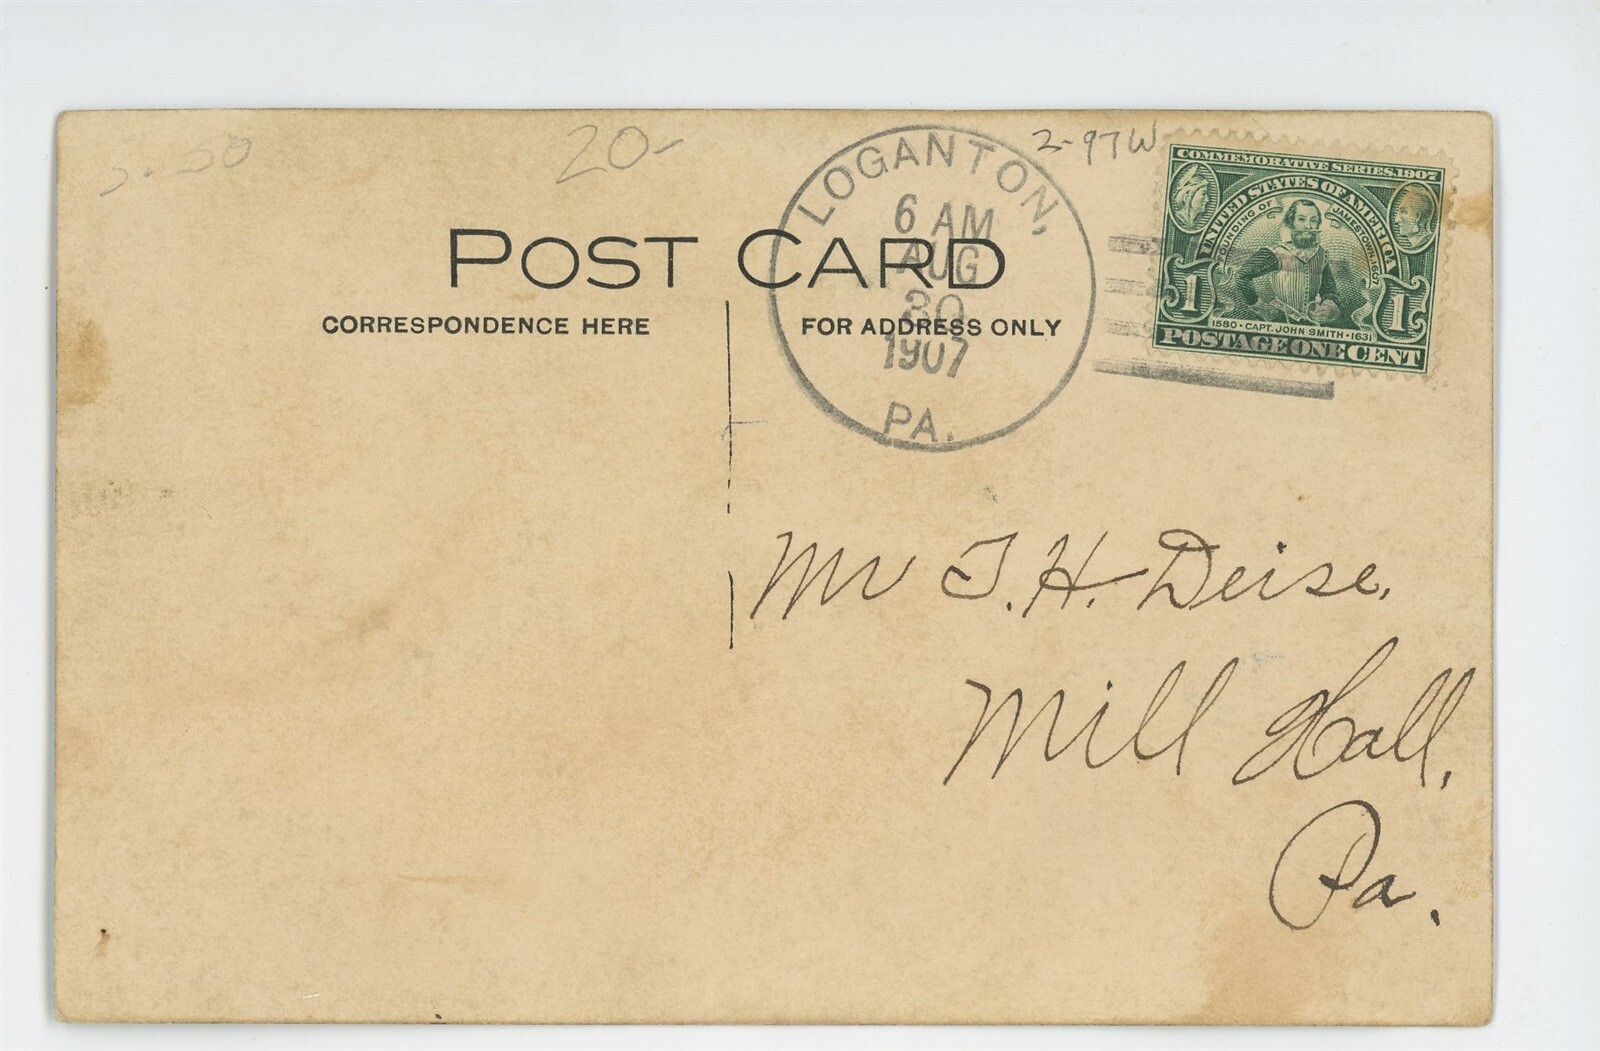 3.50
20-
2-97W
POST CARD
CORRESPONDENCE HERE
FOR ADDRESS ONLY
LOGANTON,
6 AM
AUG
30
1907
PA.
COMMEMORATIVE SERIES, 1907
UNITED STATES OF AMERICA
FOUNDING OF JAMESTOWN, 1607
1 1
1580 · CAPT. JOHN SMITH · 1631
POSTAGE ONE CENT
Mr T. H. Deise,
Mill Hall,
Pa.